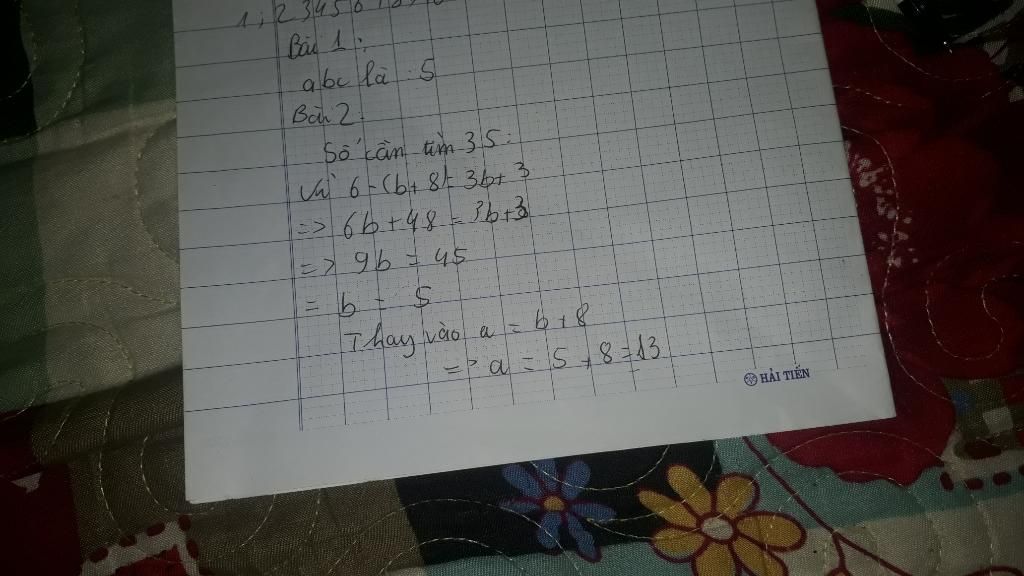 1; 2 3 4 5 6
Bài 1:
abc là : 5
Bài 2
Số cần tìm 35:
Vì 6-(b+8)= 3b+3
=> 6b+48 = 3b+3
=> 9b = 45
= b = 5
Thay vào a = b+8
=> a = 5+8=13
HẢI TIẾN